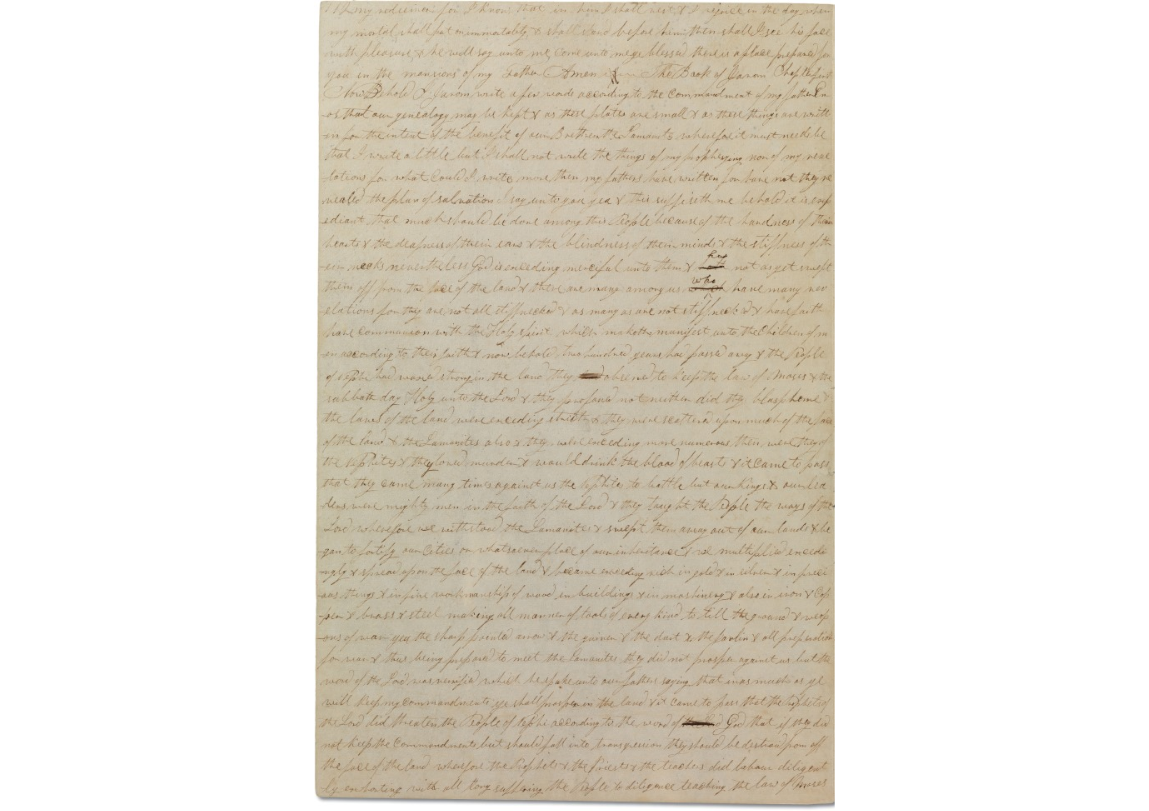 my redeemer for I know that in him I shall rest & I rejoice in the day when
my mortal shall put on immortality & shall stand before him then shall I see his face
with pleasure & he will say unto me come unto me ye blessed there is a place prepared for
you in the mansions of my Father Amen The Book of Jarom Chapter first
Now Behold I Jarom write a few words according to the commandment of my father En
os that our genealogy may be kept & as these plates are small & as these things are writt
en for the intent of the benefit of our Brethren the Lamanites wherefore it must needs be
that I write a little but I shall not write the things of my prophesying nor of my reve
lations for what could I write more then my fathers have written for have not they re
vealed the plan of salvation I say unto you yea & this sufficeth me behold it is exp
edient that much should be done among this People because of the hardness of their
hearts & the deafness of their ears & the blindness of their minds & the stiffness of th
eir necks nevertheless God is exceding merciful unto them & has not as yet swept
them off from the face of the land & there are many among us who have many rev
elations for they are not all stiffnecked & as many as are not stiffnecked & have faith
have communion with the Holy spirit which maketh manifest unto the Children of m
en according to their faith & now behold two hundred years had passed away & the People
of Nephi had waxed strong in the land they observed to keep the law of Moses & the
sabbath day Holy unto the Lord & they profaned not neither did they blaspheme &
the laws of the land were exceding strict & they were scattered upon much of the face
of the land & the Lamanites also & they were exceding more numerous then were they of
the Nephites & they loved murder & would drink the blood of beasts & it came to pass
that they came many times against us the Nephites to battle but our kings & our lea
ders were mighty men in the faith of the Lord & they taught the People the ways of the
Lord wherefore we withstood the Lamanites & swept them away out of our lands & be
gan to fortify our Cities or whatsoever place of our inheritance & we multiplied excedi
ngly & spread upon the face of the land & became exceding rich in gold & in silver & in preci
ous things & in fine workmanship of wood in buildings & in machinery & also in iron & Cop
per & brass & steel making all manner of tools of every kind to till the ground & weap
ons of war yea the sharp pointed arrow & the quiver & the dart & the javelin & all preperations
for war & thus being prepared to meet the Lamanites they did not prosper against us but the
word of the Lord was verified which he spake unto our fathers saying that inasmuch as ye
will keep my commandments ye shall prosper in the land & it came to pass that the Prophets of
the Lord did threaten the People of Nephi according to the word of God that if they did
not keep the commandments but should fall into transgression they should be destroid from off
the face of the land wherefore the Prophets & the priests & the teachers did labour diligent
ly exhorting with all long suffering the People to diligence teaching the law of Moses